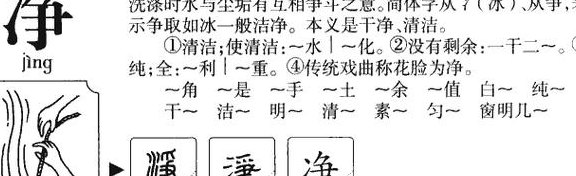 净
jìng
洗涤时水与尘垢有互相争斗之意。简体字从冫（冰）、从争，
示争取如冰一般洁净。本义是干净、清洁。
①清洁；使清洁：～水｜～化。②没有剩余：一干二～。
纯；全：～利｜～重。④传统戏曲称花脸为净。
～角 ～是 ～手 ～土 ～余 ～值 白～ 纯～
干～ 洁～ 明～ 清～ 素～ 匀～ 窗明几～
淨 淨 净